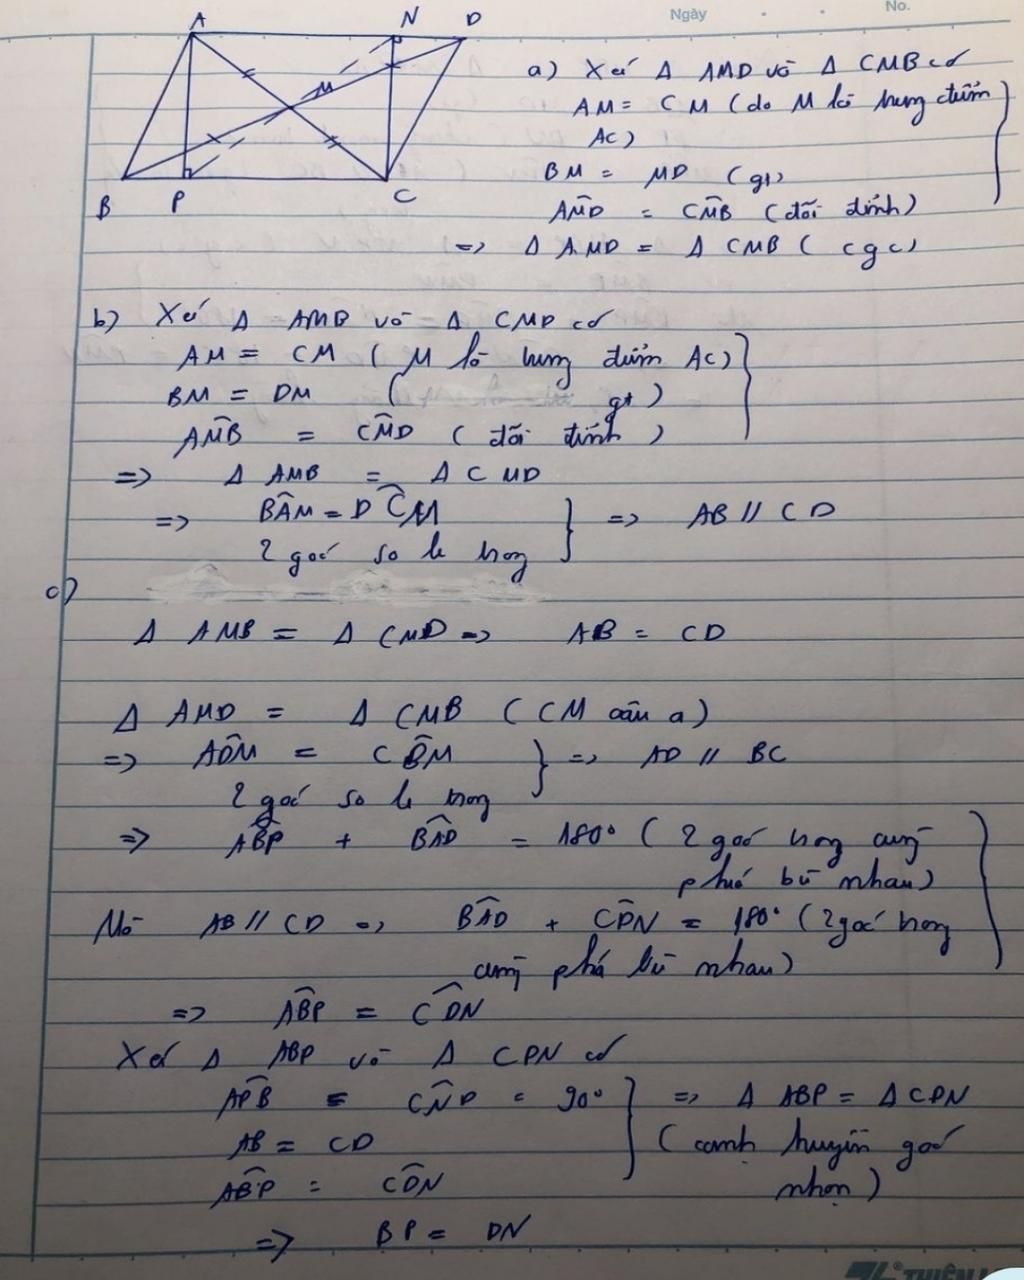 Ngày
No.
A
N
D
M
B
P
C
a) Xét Δ AMD và Δ CMB có
AM = CM (do M là trung điểm
AC)
BM = MD (gt)
AM̂D = CM̂B (đối đỉnh)
=> Δ AMD = Δ CMB (cgc)
b) Xét Δ AMB và Δ CMD có
AM = CM (M là trung điểm AC)
BM = DM ( gt)
AM̂B = CM̂D (đối đỉnh)
=> Δ AMB = Δ CMD
=> BÂM = DĈM } => AB // CD
2 góc so le trong
c)
Δ AMB = Δ CMD => AB = CD
Δ AMD = Δ CMB (CM câu a)
=> AD̂M = CB̂M } => AD // BC
2 góc so le trong
=> AB̂P + BÂD = 180° (2 góc trong cùng
phía bù nhau)
Mà AB // CD => BÂD + CD̂N = 180° (2 góc trong
cùng phía bù nhau)
=> AB̂P = CD̂N
Xét Δ ABP và Δ CDN có
AP̂B = CN̂D = 90° } => Δ ABP = Δ CDN
AB = CD (cạnh huyền góc
AB̂P = CD̂N nhọn)
=> BP = DN